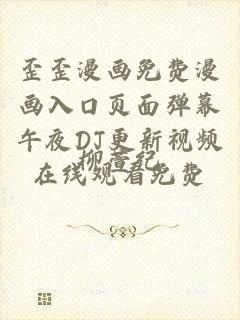 歪歪漫画免费漫
画入口页面弹幕
午夜DJ更新视频
柳萱纪
在线观看免费